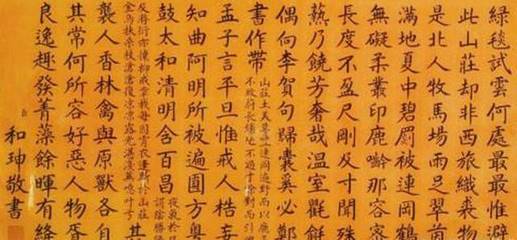 綠毯試雲何處最最惟避
此山莊却非西旅織裘物
是北人牧馬場雨足翠茵
滿地夏中碧罽被連岡鶴
無礙柔叢印鹿噛那容
長度不盈尺剛及寸聞殊
爇乃饒芳奢哉温室氍毹
偶向李賀句歸囊奚必鄭
書作帶 山莊土美草豐連岡遍野而以鹿
孟子言平旦惟戒人梏妄
知曲阿明所被遍圓方奧
鼓太和清明含百昌
其
襲人香林禽與原獸各自
其常何所容好惡人物胥
良逸趣發菁藻餘暉有絳
和珅敬書